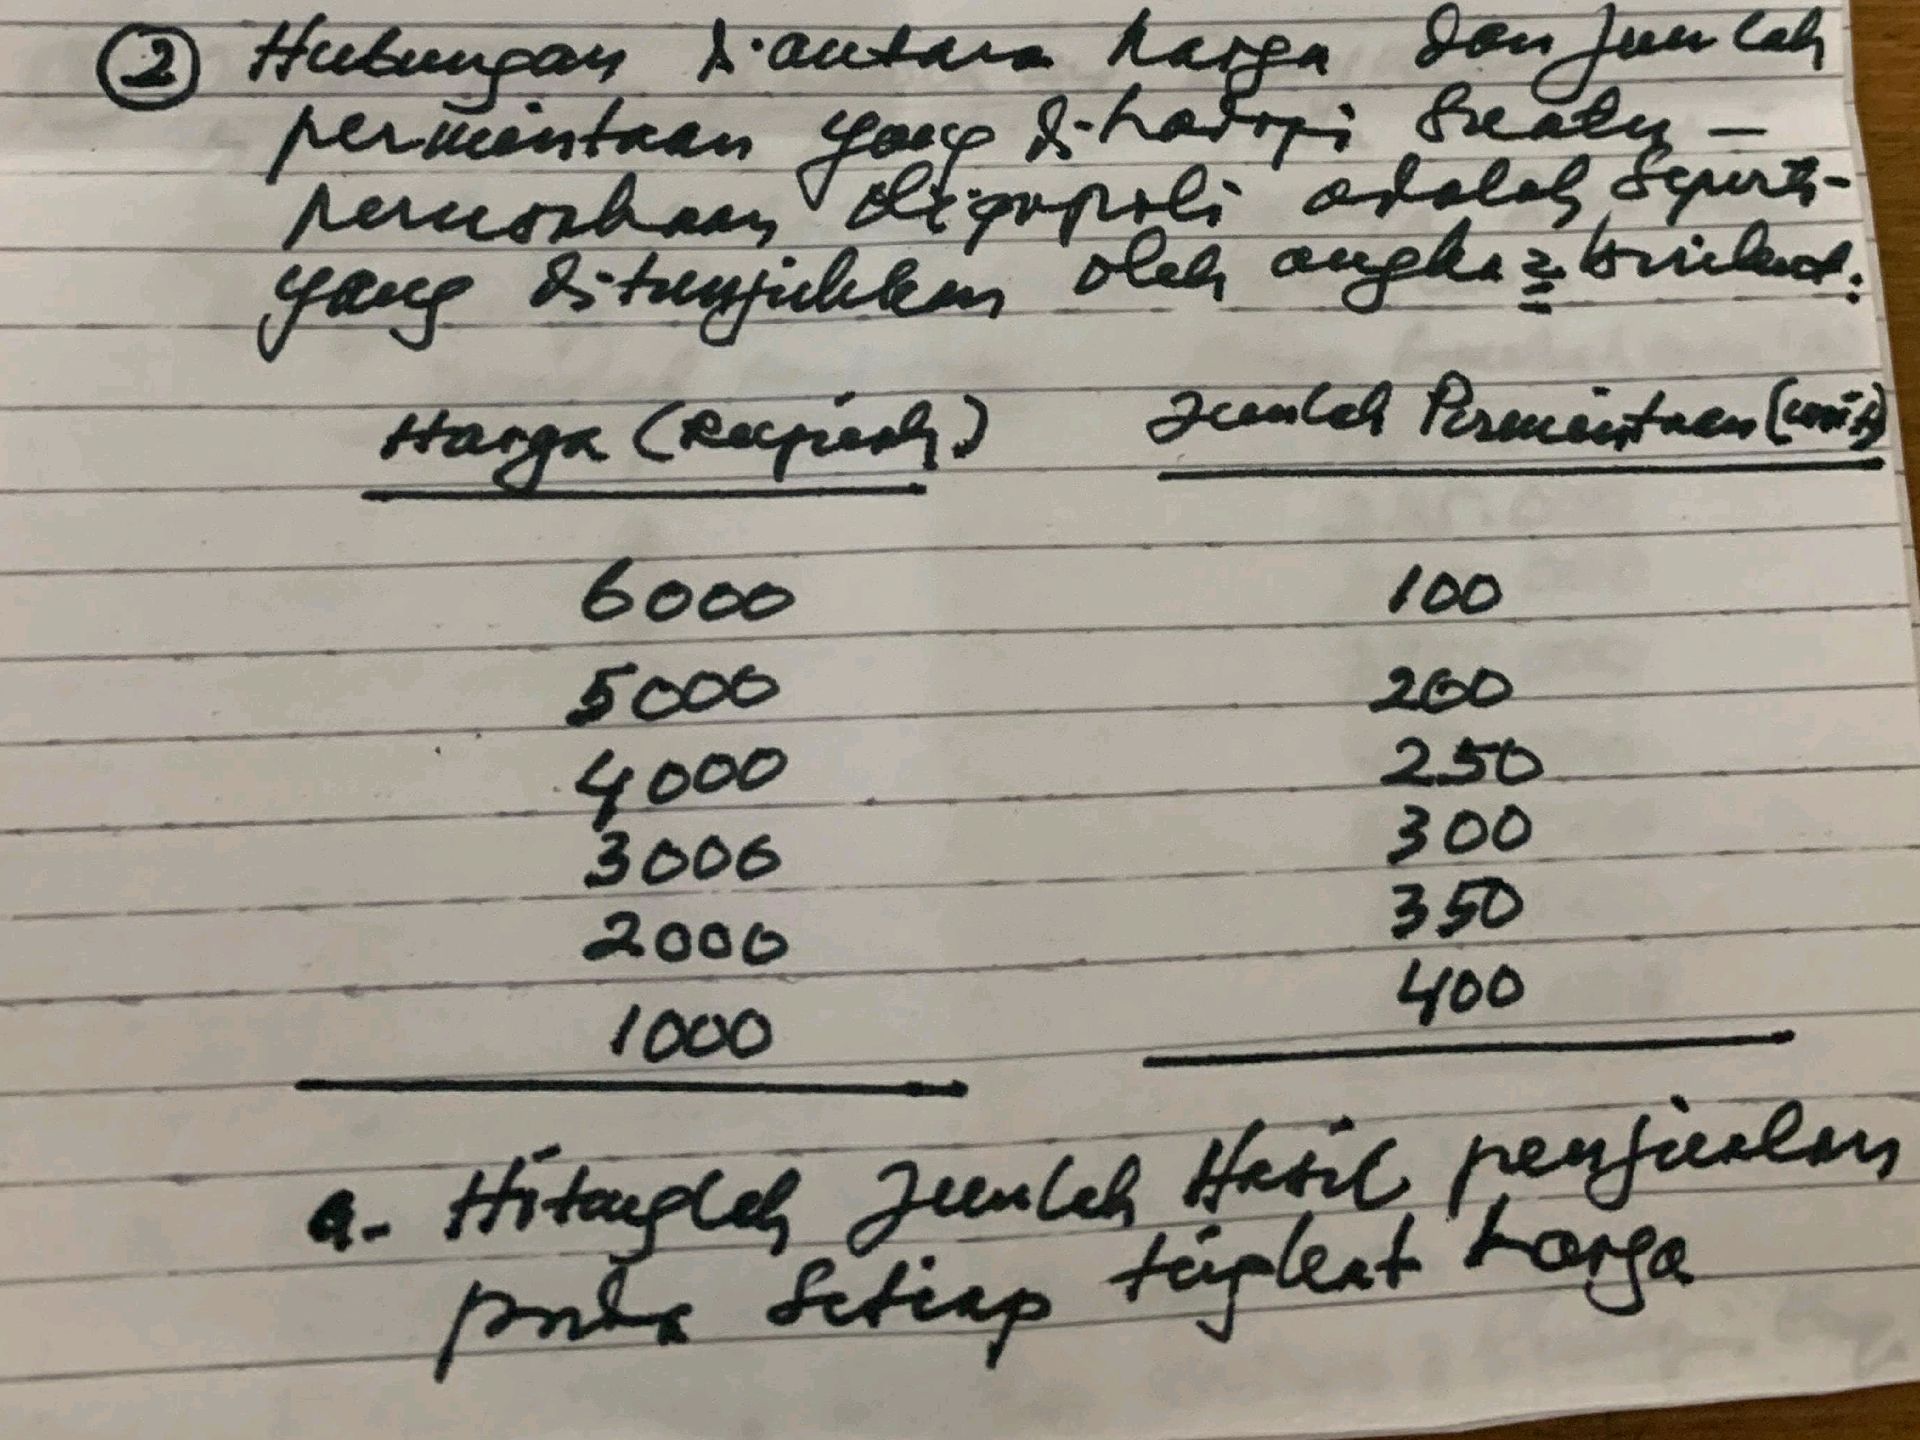 2 Hubungan diantara harga dan jumlah
permintaan yang dihadapi suatu -
perusahaan oligopoli adalah seperti-
yang ditunjukkan oleh angka2 berikut:
Harga (Rupiah) Jumlah Permintaan (unit)
6000 100
5000 200
4000 250
3000 300
2000 350
1000 400
a. Hitunglah Jumlah Hasil penjualan
pada setiap tingkat harga